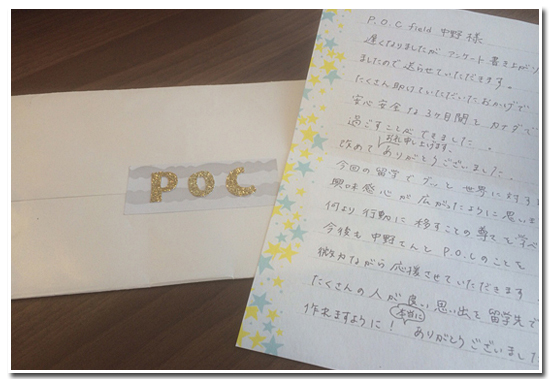 POC
P.O.C field 中野様
遅くなりましたがアンケート書き上がり
ましたので送らせていただきます。
たくさん助けていただいたおかげで
安心安全な3ヶ月間をカナダで
過ごすことができました。
お礼申し上げます。
改めてありがとうございました。
今回の留学でグッと世界に対する
興味感心が広がったように思いま
何より行動に移すことの尊さを学べ
今後も中野さんと P.O.Cのことを
微力ながら応援させていただきます
たくさんの人が良い思い出を留学先で
作れますように! 本当に ありがとうございました